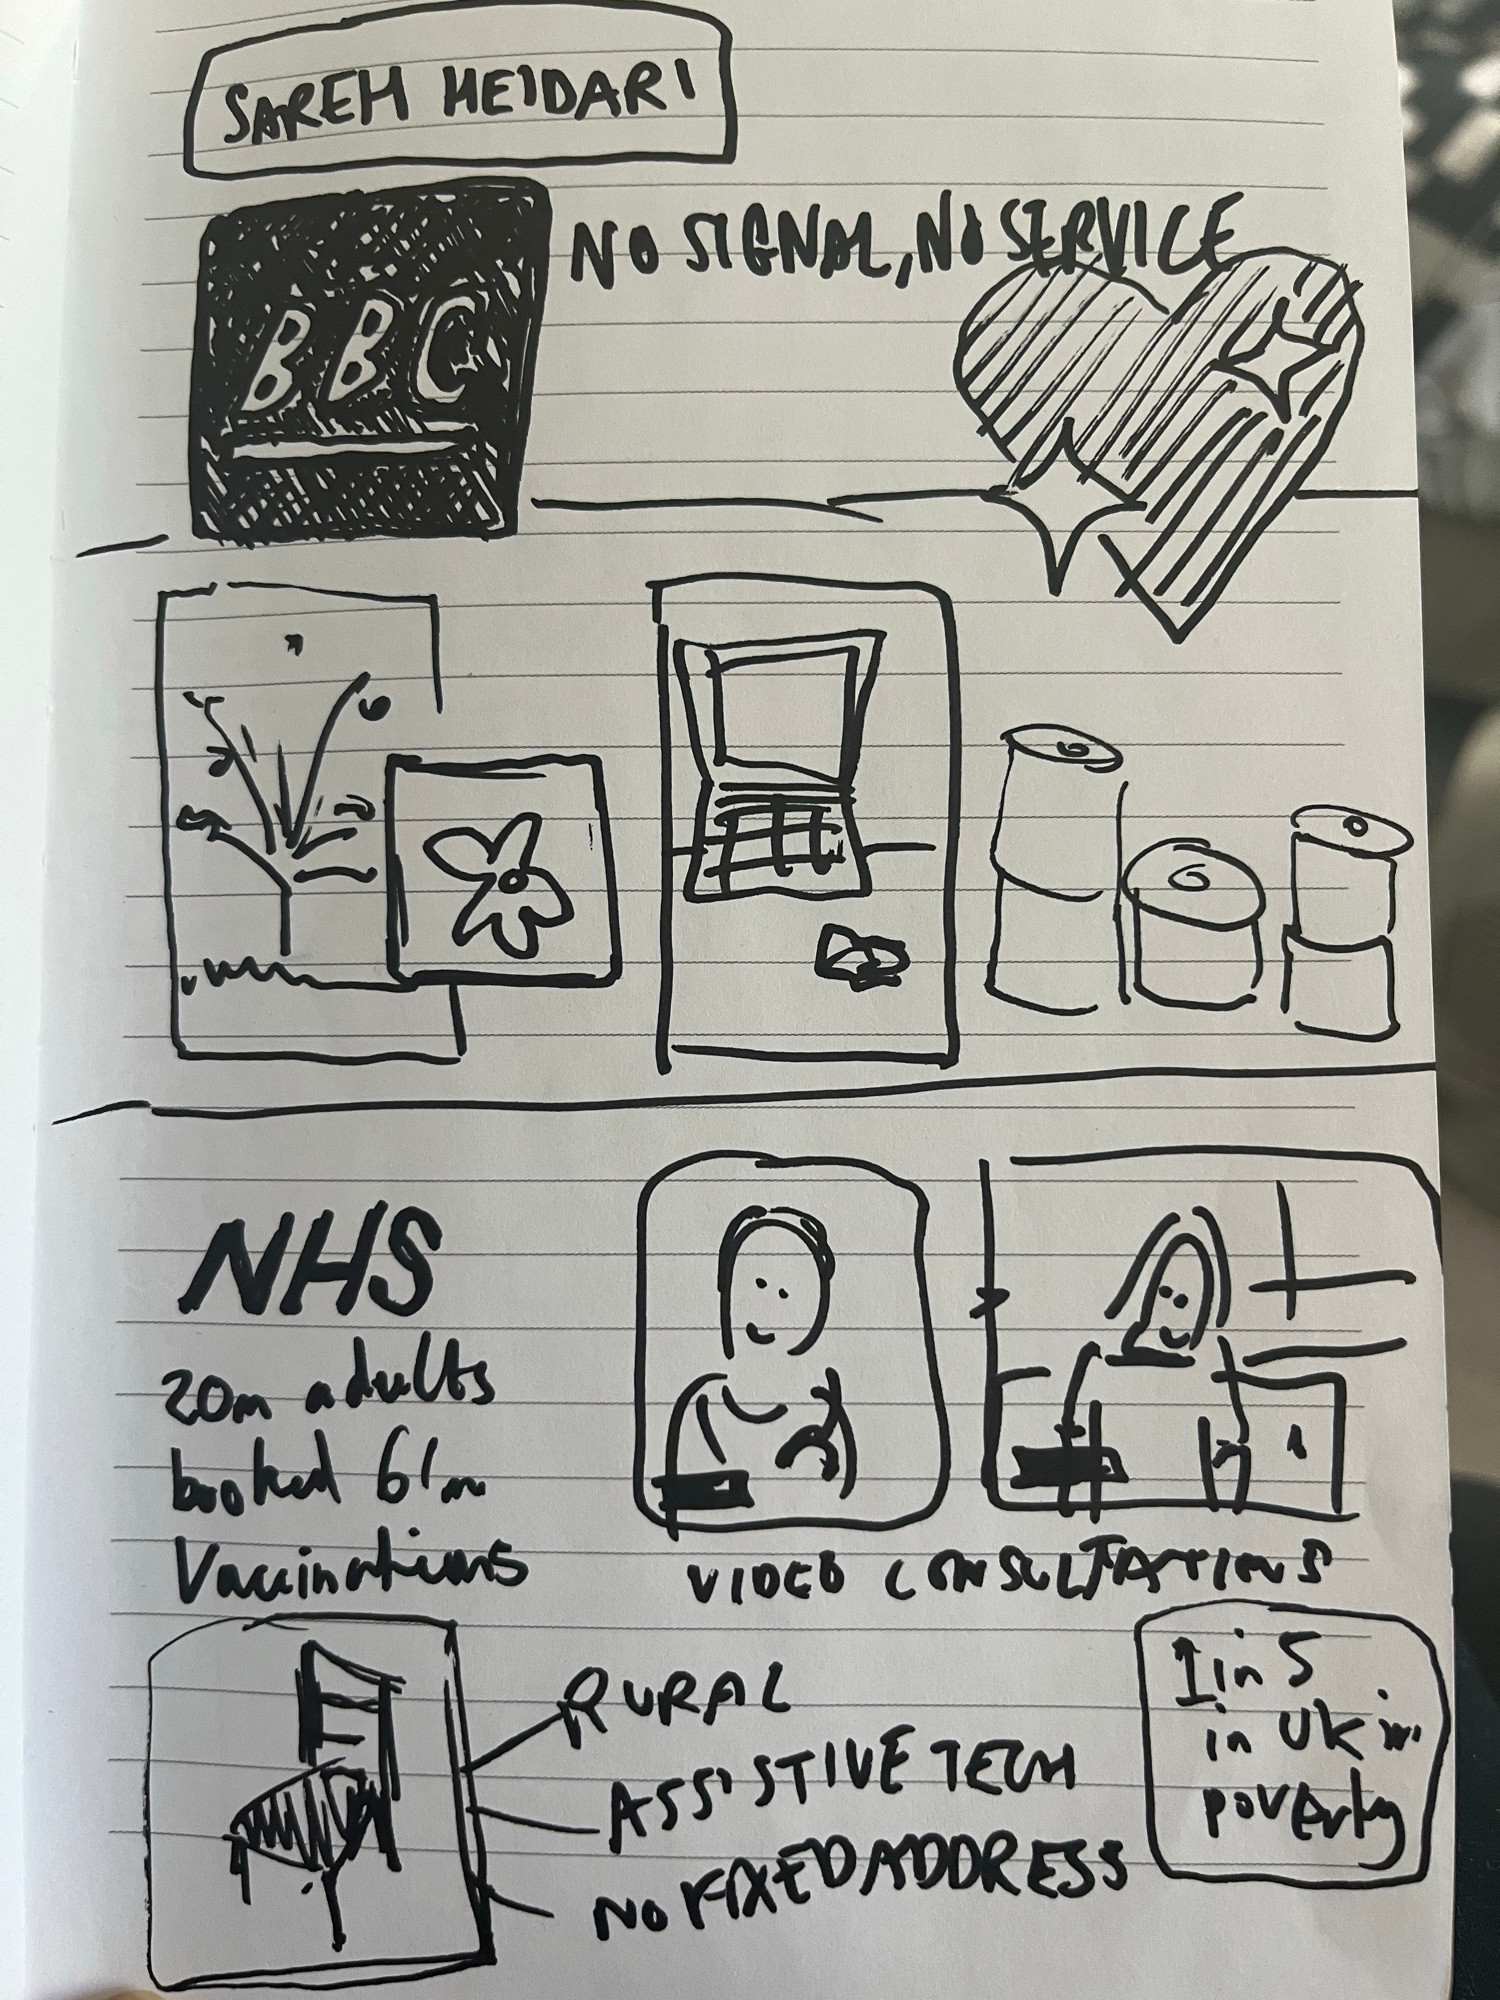 SAREH HEIDARI
BBC
NO SIGNAL, NO SERVICE
NHS
20m adults
booked 61m
Vaccinations
VIDEO CONSULTATIONS
RURAL
ASSISTIVE TECH
NO FIXED ADDRESS
1 in 5
in UK in
poverty